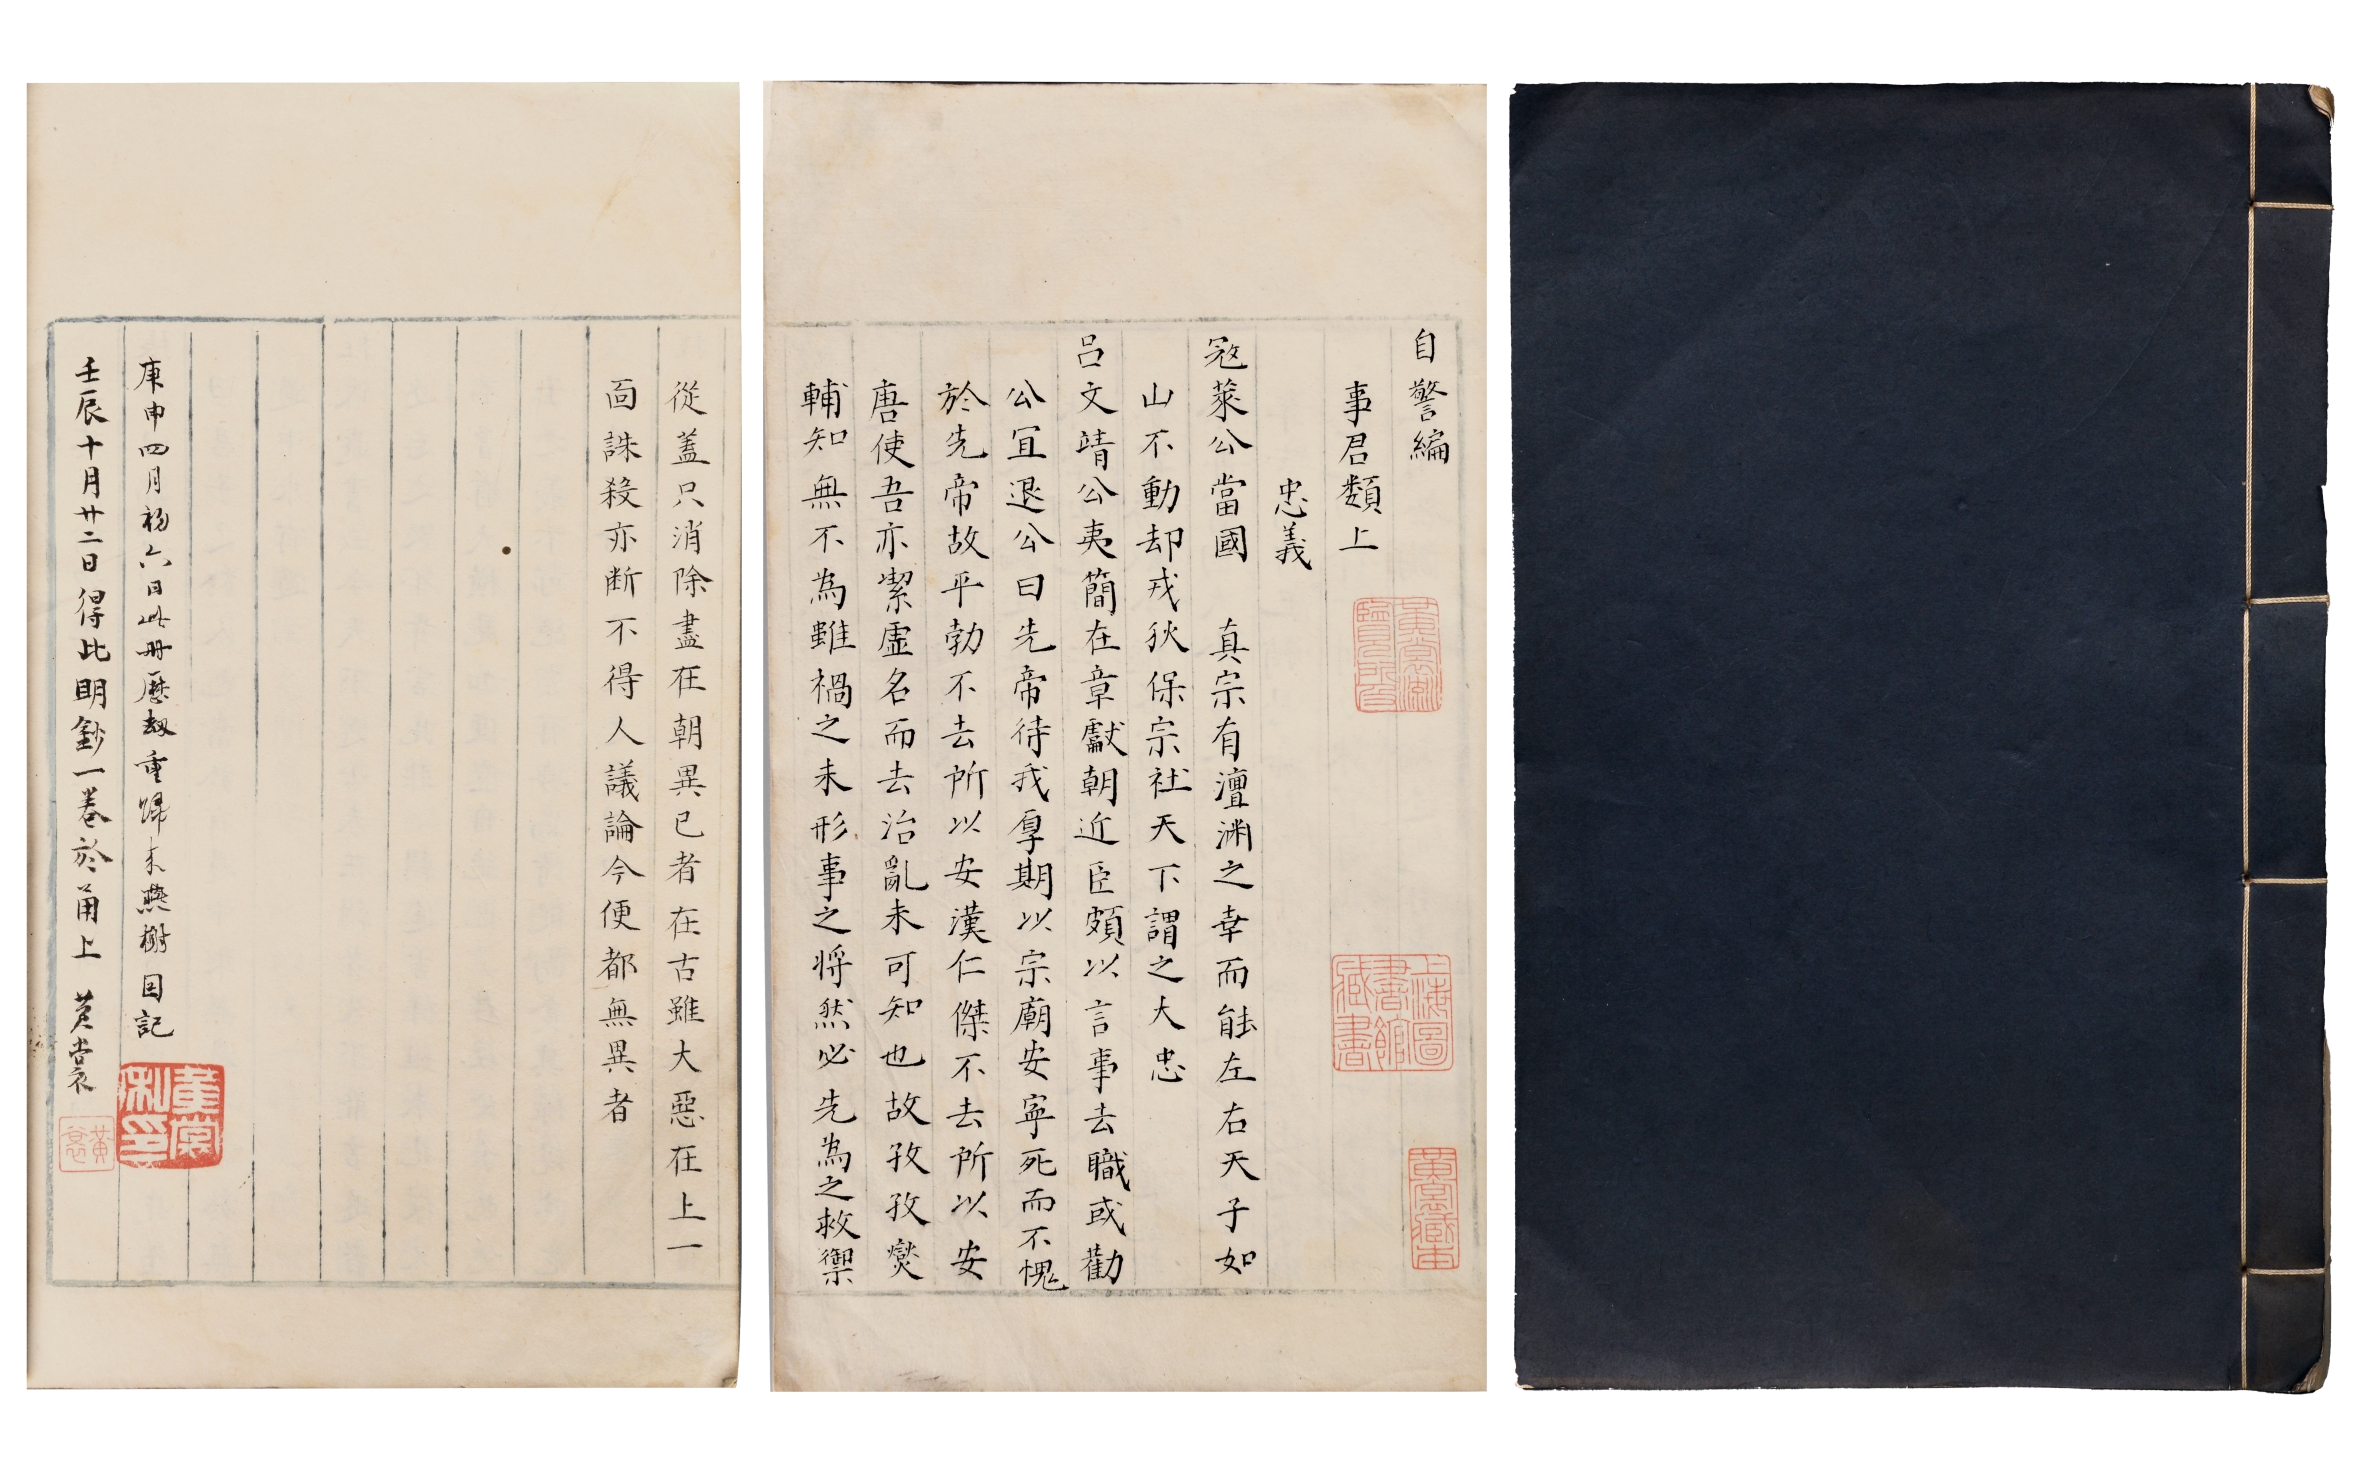 自警編
事君類上
忠義
冦萊公當國　真宗有澶渊之幸而能左右天子如
山不動却戎狄保宗社天下謂之大忠
吕文靖公夷簡在章獻朝近臣頗以言事去職或勸
公冝退公曰先帝待我厚期以宗廟安寧死而不愧
於先帝故平勃不去所以安漢仁傑不去所以安
唐使吾亦潔虛名而去治亂未可知也故孜孜燮
輔知無不為雖禍之未形事之将然必先為之救禦
上海圖書館藏書
黃裳藏本
從蓋只消除盡在朝異已者在古雖大惡在上一
面誅殺亦断不得人議論今便都無異者
庚申四月初六日此册歷劫重歸来燕榭因記
壬辰十月廿二日得此明鈔一卷於甬上　黄裳
黃裳